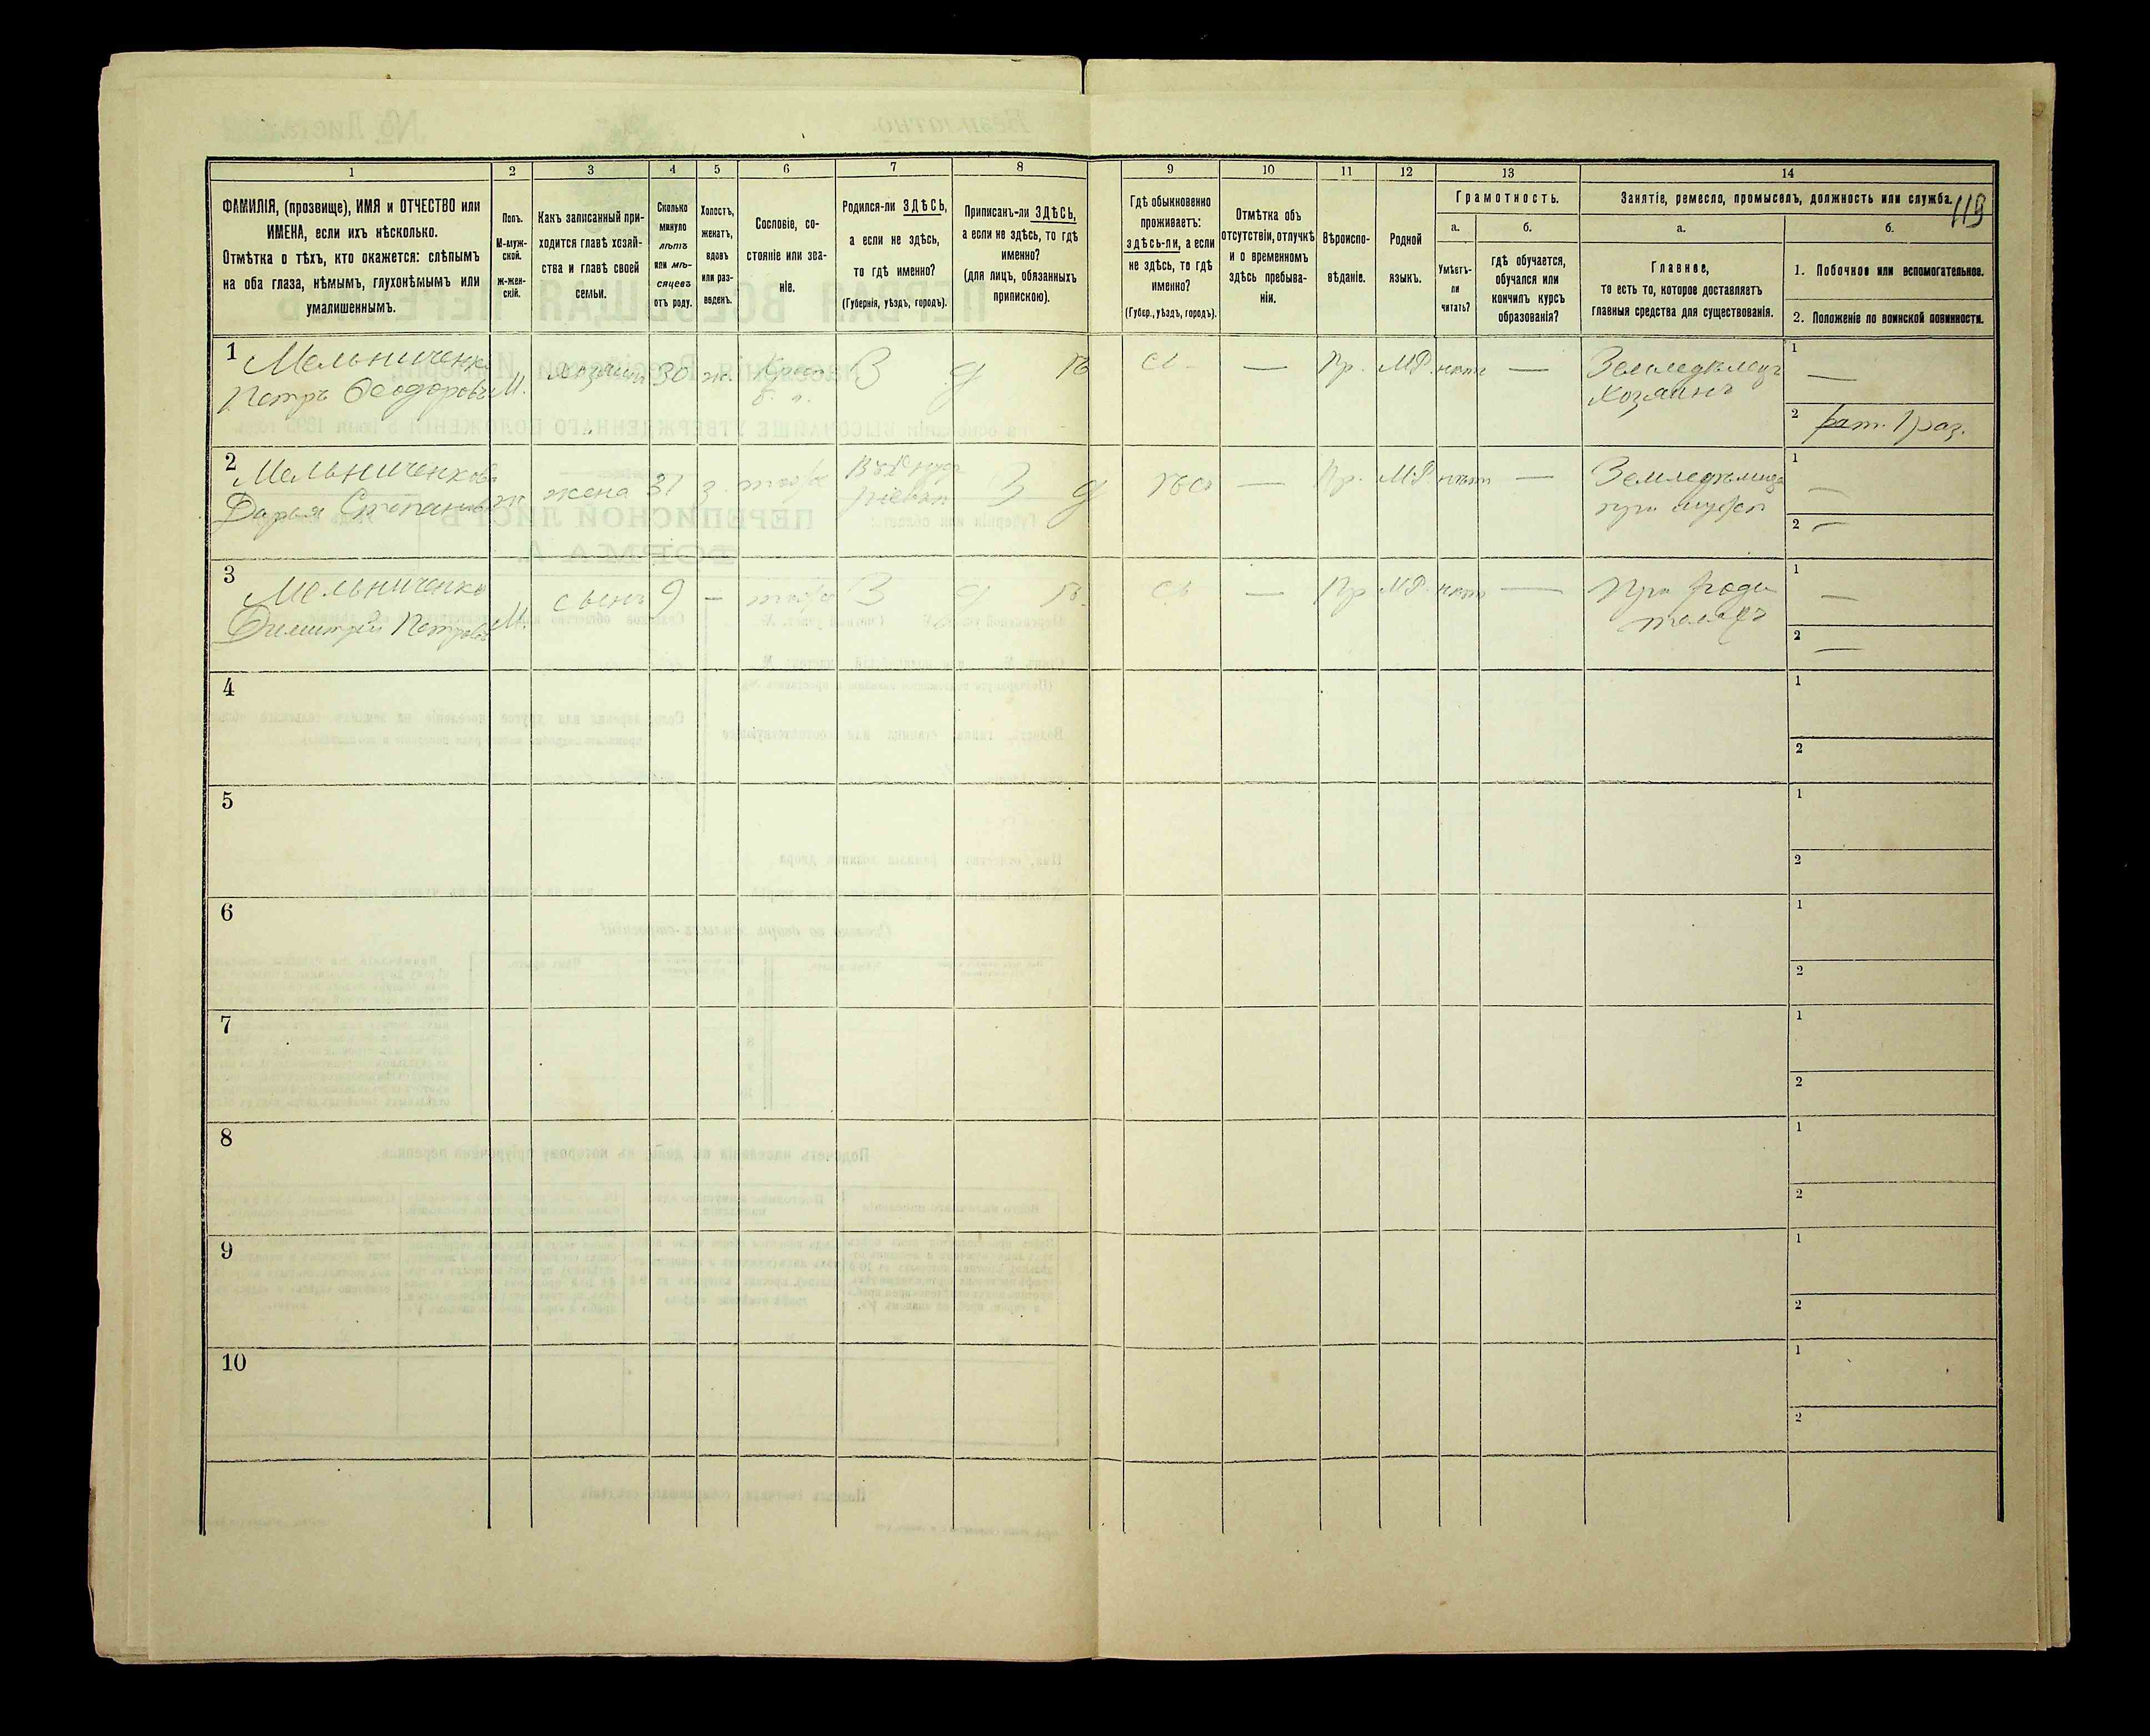 119
1 2 3 4 5 6 7 8 9 10 11 12 13 14
ФАМИЛІЯ, (прозвище), ИМЯ и ОТЧЕСТВО или
ИМЕНА, если ихъ нѣсколько.
Отмѣтка о тѣхъ, кто окажется: слѣпымъ
на оба глаза, нѣмымъ, глухонѣмымъ или
умалишеннымъ.
Полъ.
М-муж-
ской.
ж-жен-
скій.
Какъ записанный при-
ходится главѣ хозяй-
ства и главѣ своей
семьи.
Сколько
минуло
лѣтъ
или мѣ-
сяцевъ
отъ роду.
Холостъ,
женатъ,
вдовъ
или раз-
веденъ.
Сословіе, со-
стояніе или зва-
ніе.
Родился-ли ЗДѢСЬ,
а если не здѣсь,
то гдѣ именно?
(Губернія, уѣздъ, городъ).
Приписанъ-ли ЗДѢСЬ,
а если не здѣсь, то гдѣ
именно?
(для лицъ, обязанныхъ
припискою).
Гдѣ обыкновенно
проживаетъ:
здѣсь-ли, а если
не здѣсь, то гдѣ
именно?
(Губер., уѣздъ, городъ).
Отмѣтка объ
отсутствіи, отлучкѣ
и о временномъ
здѣсь пребыва-
ніи.
Вѣроиспо-
вѣданіе.
Родной
языкъ.
Грамотность.
а.
Умѣетъ-
ли
читать?
б.
гдѣ обучается,
обучался или
кончилъ курсъ
образованія?
Занятіе, ремесло, промыселъ, должность или служба.
а.
Главное,
то есть то, которое доставляетъ
главныя средства для существованія.
б.
1. Побочное или вспомогательное.
2. Положеніе по воинской повинности.
1 Мельниченко
Петръ Ѳеодоровъ М. хозяинъ 30 ж. Крест. З д Пр. М.Р. нѣтъ — Земледѣлецъ
хозяинъ
1 —
2 рат. 1 раз.
2 Мельниченкова
Дарья Степанова ж жена 31 З д Пр. М.Р. нѣтъ — Земледѣлица
при мужѣ
1 —
2 —
3 Мельниченко
Димитрій Петровъ М. сынъ 9 — З д — Пр М.Р. нѣтъ — При роди
теляхъ
1 —
2 —
4
1
2
5
1
2
6
1
2
7
1
2
8
1
2
9
1
2
10
1
2